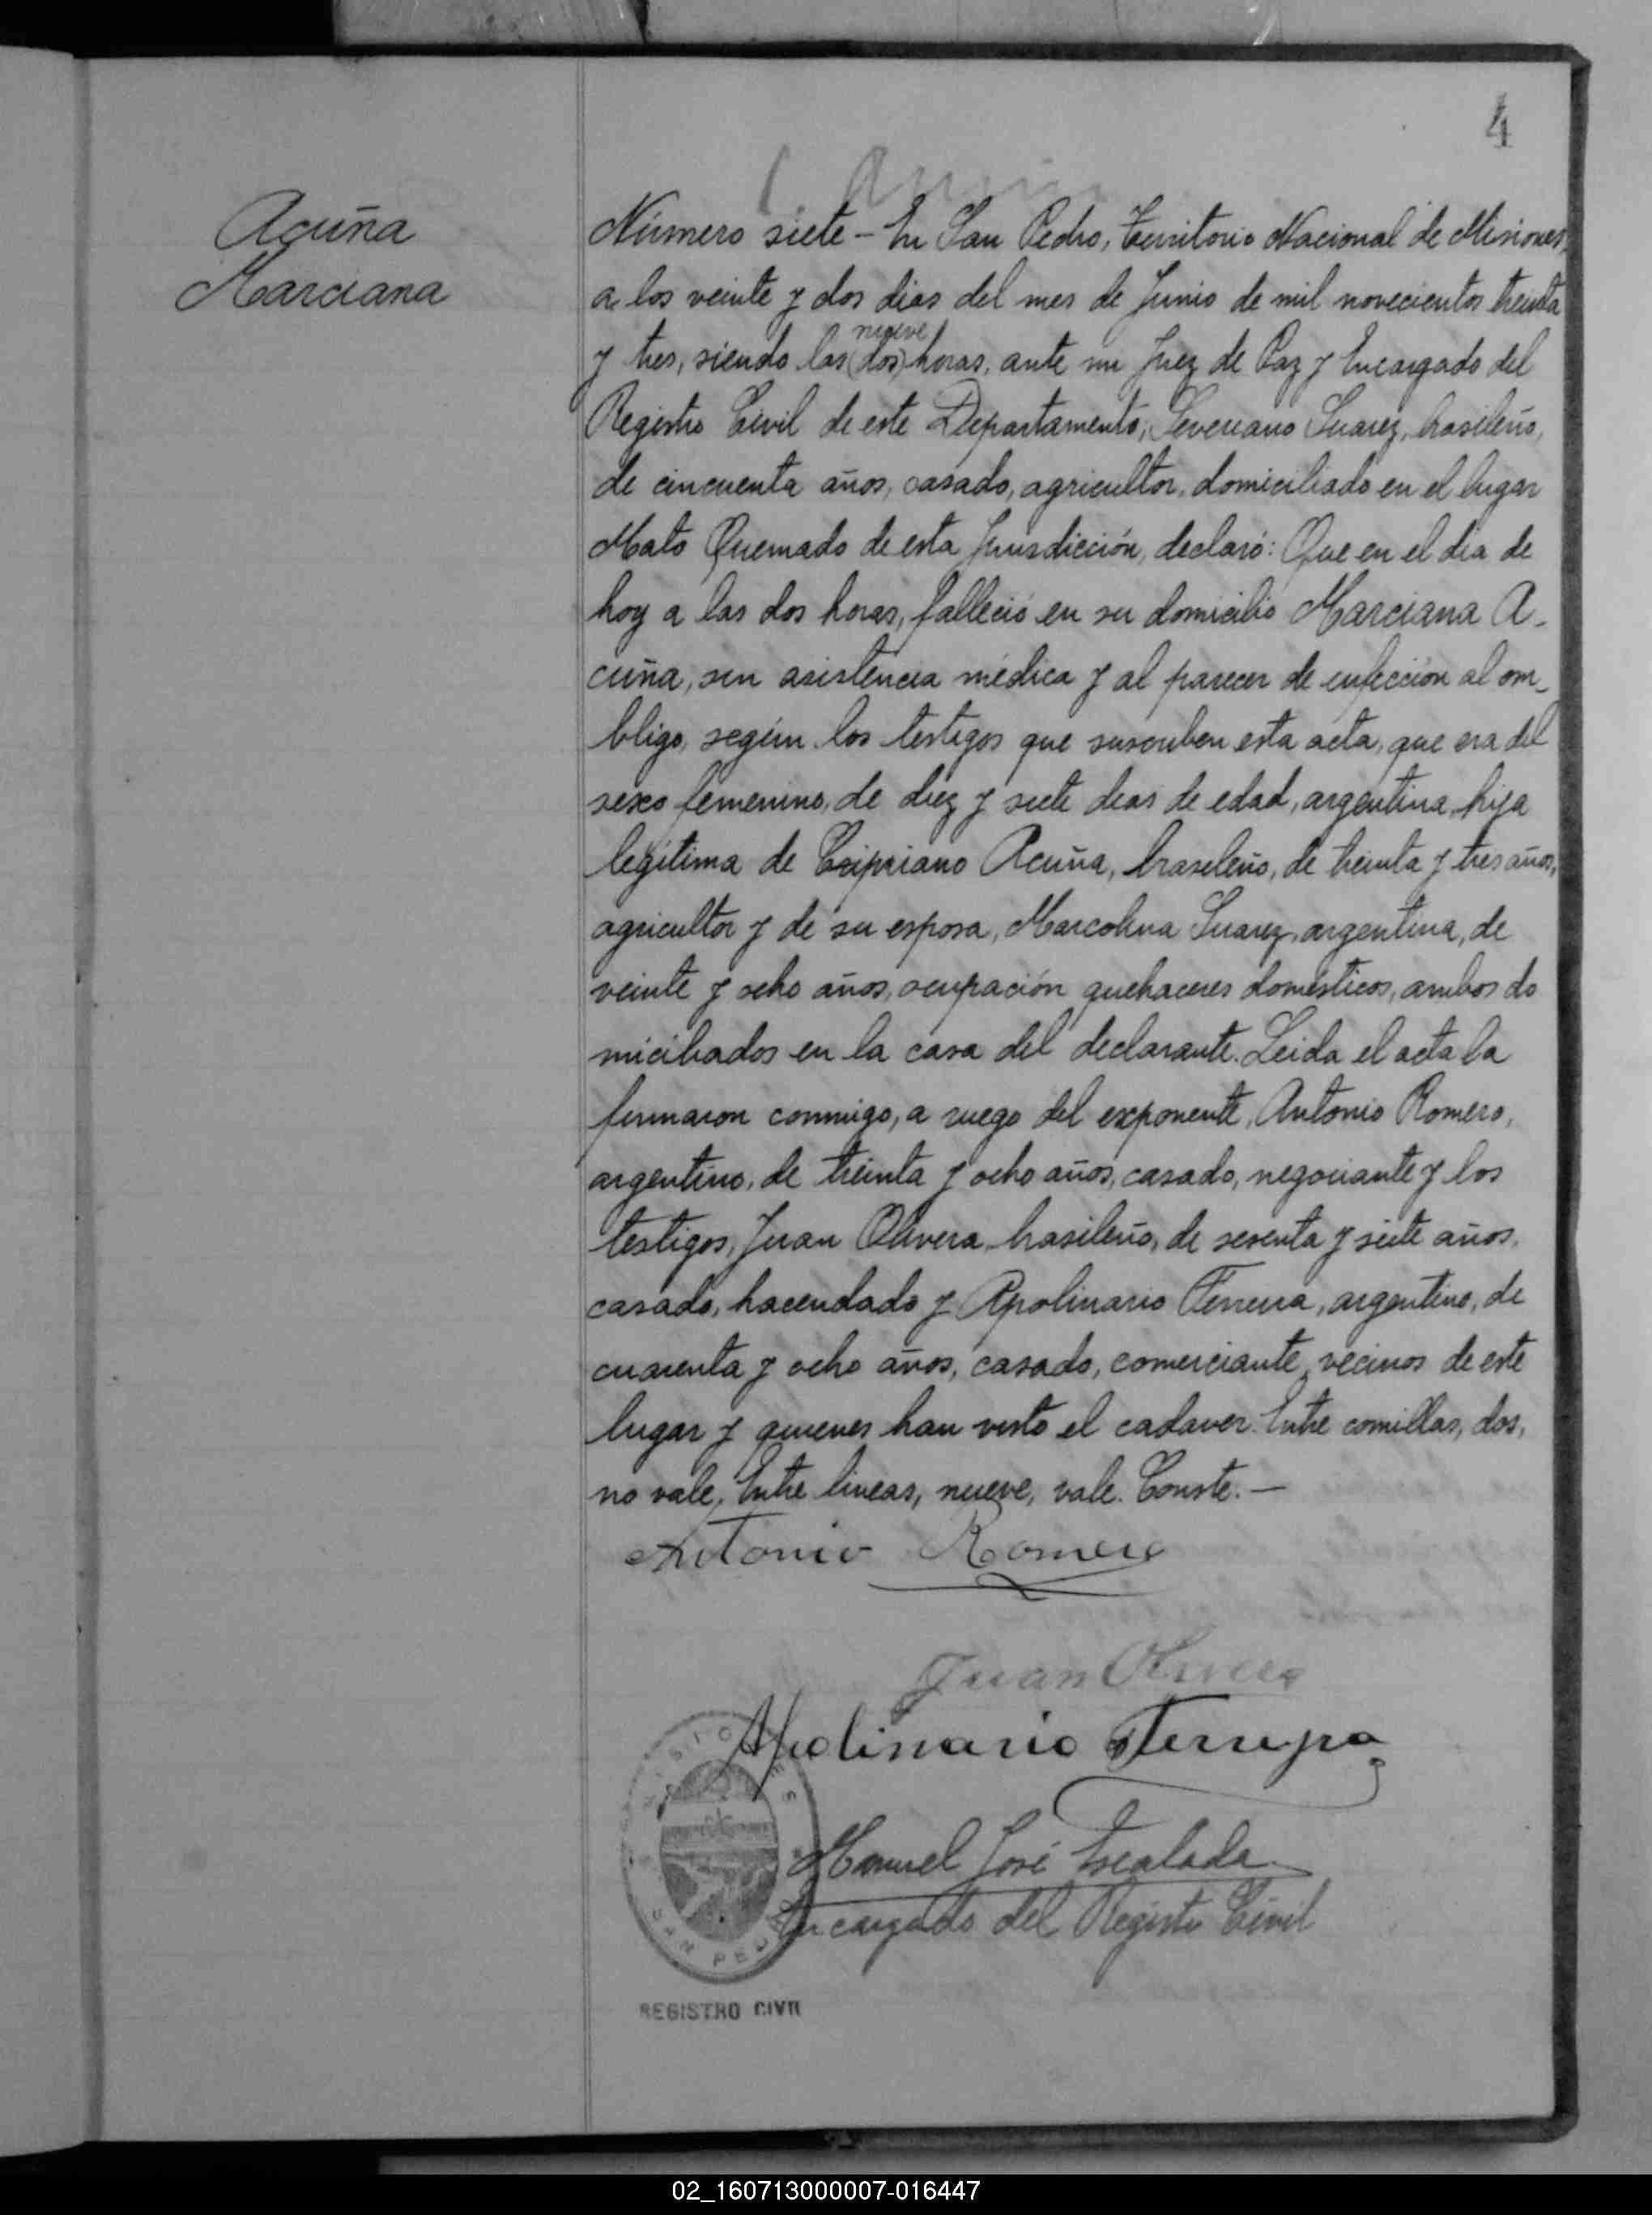 4
Acuña
Marciana
Número siete - En San Pedro, Territorio Nacional de Misiones,
a los veinte y dos dias del mes de Junio de mil novecientos treinta
nueve
y tres, siendo las (dos) horas, ante mi Juez de Paz y Encargado del
Registro Civil de este Departamento, Severiano Suarez, brasileño,
de cincuenta años, casado, agricultor, domiciliado en el lugar
Mato Quemado de esta Jurisdicción, declaró: Que en el dia de
hoy a las dos horas, falleció en su domicilio Marciana A-
cuña, sin asistencia médica y al parecer de infección al om-
bligo, según los testigos que suscriben esta acta, que era del
sexo femenino, de diez y siete dias de edad, argentina, hija
legítima de Cipriano Acuña, brasileño, de treinta y tres años,
agricultor y de su esposa, Marcolina Suarez, argentina, de
veinte y ocho años, ocupación quehaceres domésticos, ambos do
miciliados en la casa del declarante. Leida el acta la
firmaron conmigo, a ruego del exponente, Antonio Romero,
argentino, de treinta y ocho años, casado, negociante y los
testigos, Juan Olivera, brasileño, de sesenta y siete años,
casado, hacendado y Apolinario Ferreira, argentino, de
cuarenta y ocho años, casado, comerciante, vecinos de este
lugar y quienes han visto el cadaver. Entre comillas, dos,
no vale, Entre lineas, nueve, vale. Conste. -
Antonio Romero
Juan Olivera
Apolinario Ferreyra
Manuel José Escalada
Encargado del Registro Civil
MISIONES
SAN PEDRO
REGISTRO CIVIL
02_160713000007-016447